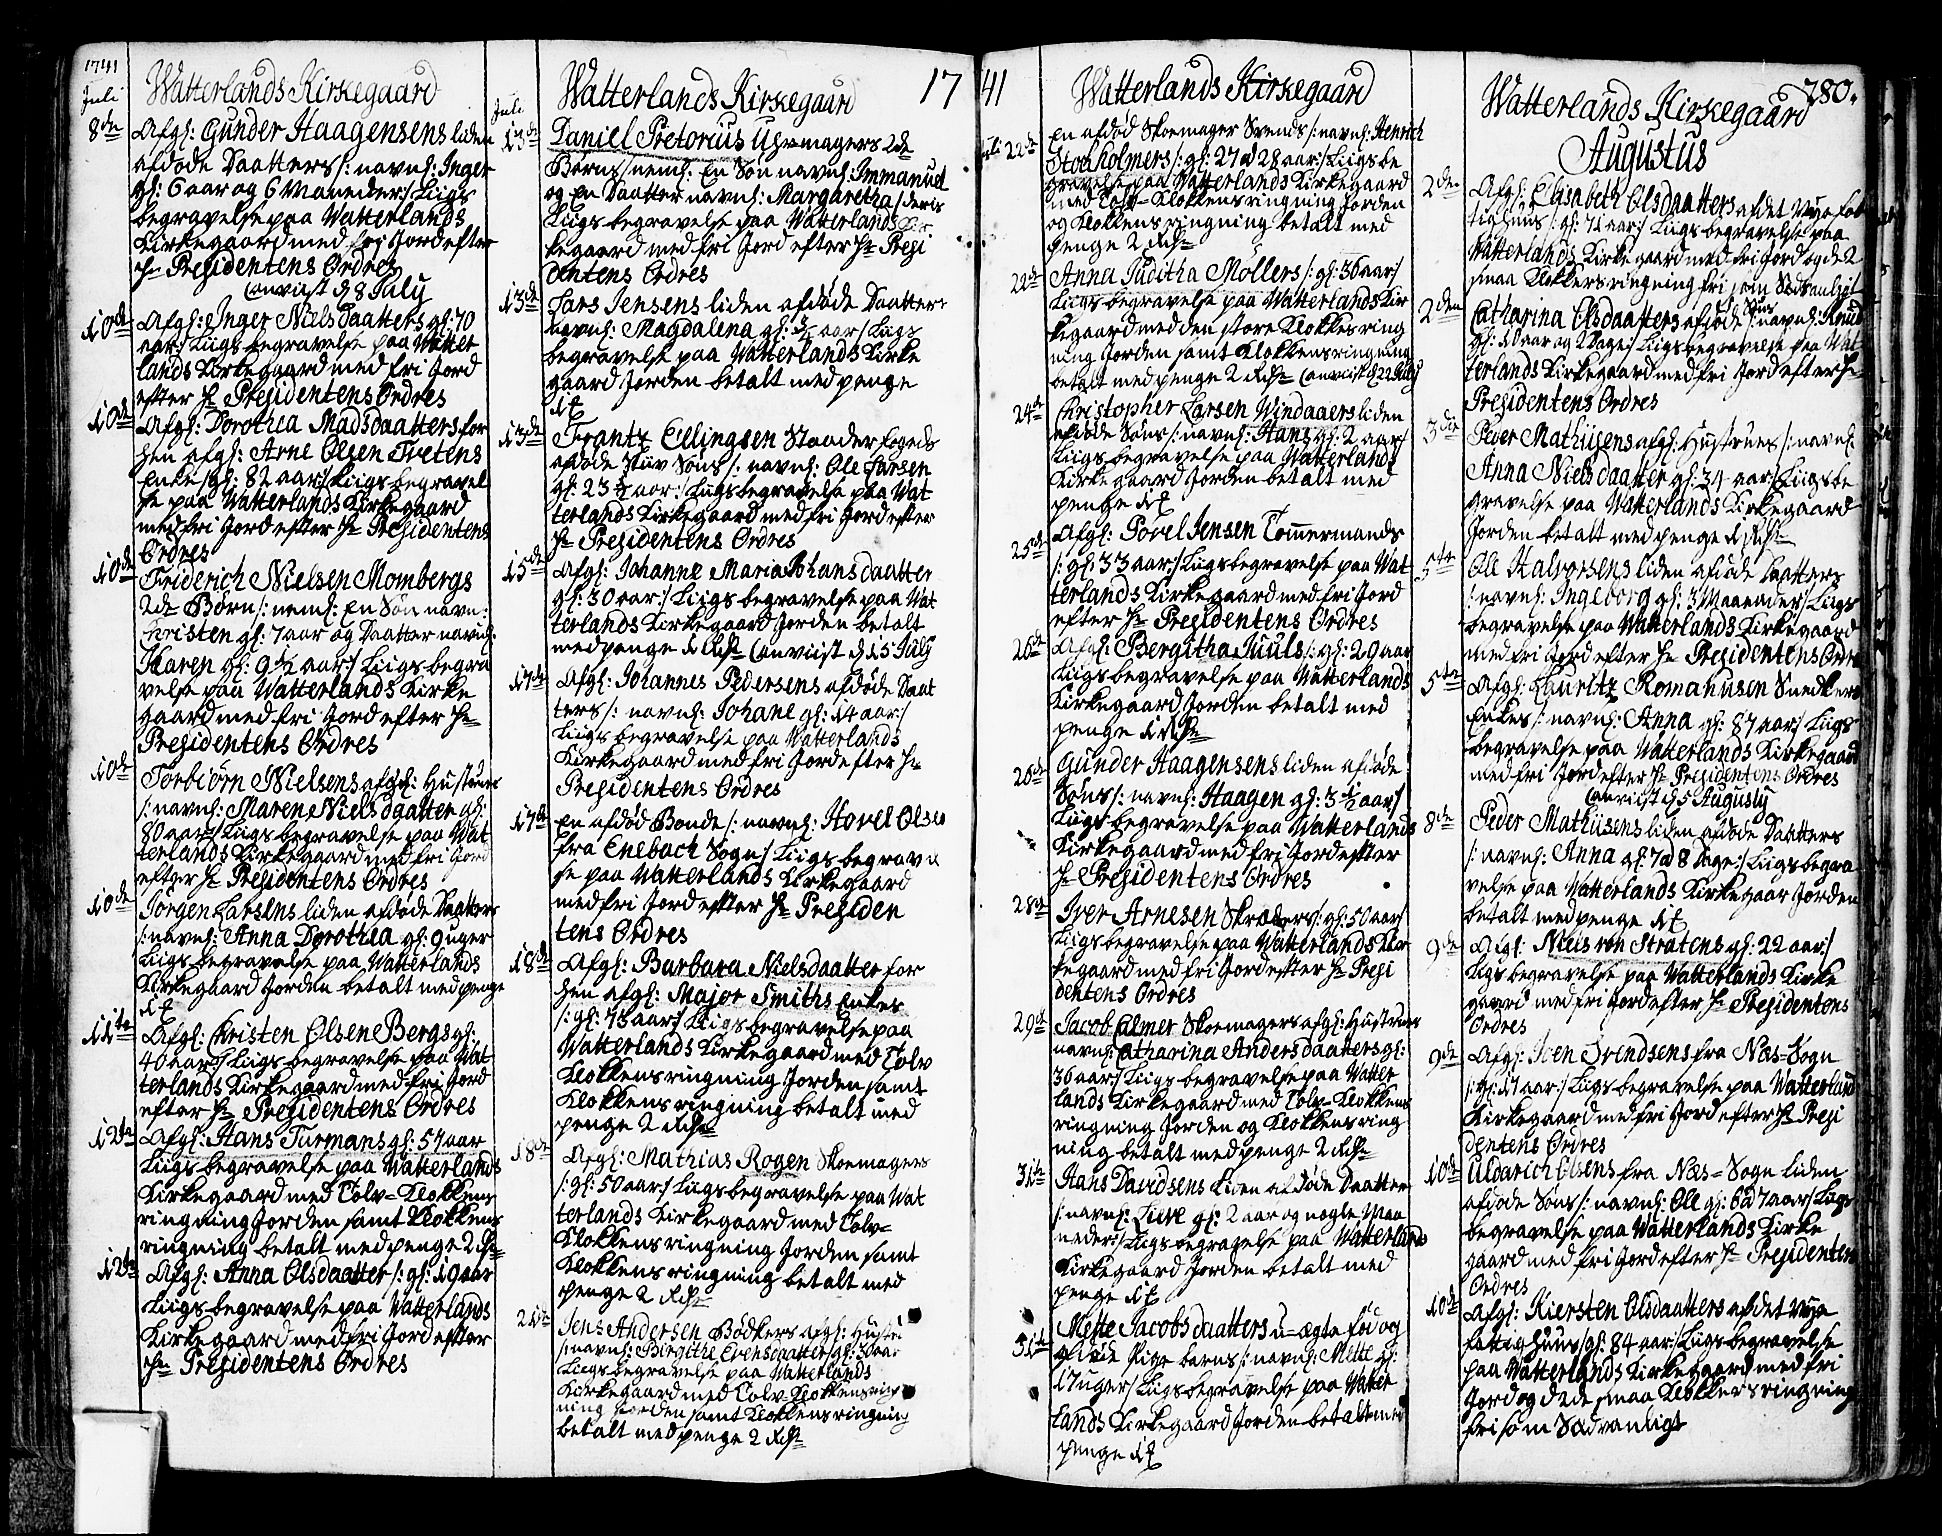 1741
Juli
Watterlands Kirkegaard
8de Afgl: Gunder Haagensens liden
afdøde Daatters /: navnl: Inger
gl: 6 aar og 6 Maaneder:/ Liigs
begravelse paa Watterlands
Kirkegaard med fri Jord efter
Hr Presidentens Ordres
(anviist d 8 July
10de Afgl: Inger Nielsdaatters gl: 70
aar:/ Liigs begravelse paa Watter
lands Kirkegaard med fri Jord
efter Hr Presidentens Ordres
10de Afgl: Dorothea Madsdaatters for
hen afgl: Arne Olsen Tretens
Enke /gl: 82 aar:/ Liigs begravel
se paa Watterlands Kirkegaard
med fri Jord efter Hr Presidentens
Ordres
10de Friderich Nielsen Mombergs
2de Børn /: neml: En Søn navn:
Christen gl: 7 aar og Daatter navnl:
Karen gl: 9 1/2 aar:/ Liigs begra
velse paa Watterlands Kirke
gaard med fri Jord efter Hr
Presidentens Ordres
10de Torbiørn Nielsens afgl: Hustrues
/: navnl: Maren Nielsdaatter gl:
80 aar:/ Liigs begravelse paa Wat
terlands Kirkegaard med fri Jord
efter Hr Presidentens Ordres
10de Jørgen Larsens liden afdøde Daatters
/: navnl: Anna Dorothea gl: 9 uger
Liigs begravelse paa Watterlands
Kirkegaard Jorden betalt med penge
11te Afgl: Christen Olsen Bergs gl:
40 aar:/ Liigs begravelse paa Wat
terlands Kirkegaard med fri Jord
efter Hr Presidentens Ordres
12te Afgl: Hans Turmans gl: 57 aar
Liigs begravelse paa Watterlands
Kirkegaard med Tolv-Klokkens
ringning Jorden samt Klokkens
ringning betalt med penge 2 Rdr
12te Afgl: Anna Olsdaatter /: gl: 19 aar
Liigs begravelse paa Watterlands
Kirkegaard med fri Jord efter
Hr Presidentens Ordres
Juli
Watterlands Kirkegaard 17
13de Daniel Pretorius Uhrmagers 2de
Børns /: neml: En Søn navnl: Immanuel
og En Daatter navnl: Margaretha / deris
Liigs begravelse paa Watterlands Kir
kegaard med fri Jord efter Hr Presi
dentens Ordres
13de Lars Jensens liden afdøde Daatter
navnl: Magdalena gl: 1/2 aar:/ Liigs
begravelse paa Watterlands Kirke
gaard Jorden betalt med penge
13de Frantz Ellingsen Staaderfogeds
afdøde Stiiv Søns /: navnl: Ole Larsen
gl: 23 1/2 aar:/ Liigs begravelse paa Wat
terlands Kirkegaard med fri Jord efter
Hr Presidentens Ordres
15de Afgl: Johanne Maria Johansdaatter
gl: 30 aar:/ Liigs begravelse paa Wat
terlands Kirkegaard Jorden betalt
med penge 1 Rdr (anviist d 15 July
17de Afgl: Johannes Pedersens afdøde Daat
ters /: navnl: Johane gl: 14 aar:/
Liigs begravelse paa Watterlands
Kirkegaard med fri Jord efter Hr
Presidentens Ordres
17de En afdød Bonde /: navnl: Hovel Olsen
fra Enebach Sogn:/ Liigs begravel
se paa Watterlands Kirkegaard
med fri Jord efter Hr Presiden
tens Ordres
18de Afgl: Barbara Nielsdaatter for
hen afgl: Major Smiths Enkes
/: gl: 75 aar:/ Liigs begravelse paa
Watterlands Kirkegaard med Tolv
Klokkens ringning Jorden samt
Klokkens ringning betalt med
penge 2 Rdr
18de Afgl: Mathias Rogen Skoemagers
/: gl: 50 aar:/ Liigs begravelse paa Wat
terlands Kirkegaard med Tolv-
Klokkens ringning Jorden samt
Klokkens ringning betalt med
penge 2 Rdr
21de Jens Andersen Bødkers afgl: Hustru
/: navnl: Birgithe Evensdaatter gl: 30 aar
Liigs begravelse paa Watterlands
Kirkegaard med Tolv Klokkens ring
ning Jorden samt Klokkens ringning
betalt med penge 2 Rdr
41
Watterlands Kirkegaard
Juli 22de En afdød Skoemager Svends /: navnl: Henrich
Stockholmers /: gl: 27 a 28 aar:/ Liigs be
gravelse paa Watterlands Kirkegaard
med Tolv-Klokkens ringning Jorden
og Klokkens ringning betalt med
penge 2 Rdr
22de Anna Juditha Møllers /: gl: 36 aar:/
Liigs begravelse paa Watterlands Kir
kegaard med den store Klokkes ring
ning Jorden samt Klokkens ringning
betalt med penge 2 Rdr (anviist d 22 July
24de Christopher Larsen Windaaers liden
afdøde Søns /: navnl: Hans gl: 2 aar:/
Liigs begravelse paa Watterlands
Kirkegaard Jorden betalt med
penge
25de Afgl: Povel Jensen Tømmermands
/: gl: 33 aar:/ Liigs begravelse paa Wat
terlands Kirkegaard med fri Jord
efter Hr Presidentens Ordres
26de Afgl: Bergitha Juuls /: gl: 29 aar
Liigs begravelse paa Watterlands
Kirkegaard Jorden betalt med
penge 1 Rdr
26de Gunder Haagensens liden afdøde
Søns /: navnl: Haagen gl: 3 1/2 aar:/
Liigs begravelse paa Watterlands
Kirkegaard med fri Jord efter
Hr Presidentens Ordres
28de Iver Arnesen Skræders /: gl: 50 aar:/
Liigs begravelse paa Watterlands Kir
kegaard med fri Jord efter Hr Presi
dentens Ordres
29de Jacob Calmer Skoemagers afgl: Hustrues
navnl: Catharina Andersdaatters gl:
36 aar:/ Liigs begravelse paa Watter
lands Kirkegaard med Tolv-Klokkens
ringning Jorden og Klokkens ring
ning betalt med penge 2 Rdr
31te Hans Davidsens liden afdøde Daatter
/: navnl: Live gl: 2 aar og nogle Maa
neder:/ Liigs begravelse paa Watterlands
Kirkegaard Jorden betalt med
penge
31te Mette Jacobsdaatters u-ægte fød og
Pige barns /: navnl: Mette gl:
17 uger:/ Liigs begravelse paa Watter
lands Kirkegaard Jorden betalt med
penge
780.
Watterlands Kirkegaard
Augustus
2den Afgl: Elisabeth Olsdaatters af det Nye fat
tighuus /: gl: 71 aar:/ Liigs begravelse paa
Watterlands Kirkegaard med fri Jord og de 2
smaa Klokkers ringning fri som Sædvanligt
2den Catharina Olsdaatters afdøde Søns /: navnl: Knud
gl: 10 aar og 2 Dage:/ Liigs begravelse paa Wat
terlands Kirkegaard med fri Jord efter Hr
Presidentens Ordres
3die Peder Mathiisens afgl: Hustrues /: navnl:
Anna Nielsdaatter gl: 34 aar:/ Liigs be
gravelse paa Watterlands Kirkegaard
Jorden betalt med penge 1 Rdr
5te Ole Halvorsens liden afdøde Daatters
/: navnl: Ingeborg gl: 3 Maaneder:/ Liigs
begravelse paa Watterlands Kirkegaard
med fri Jord efter Hr Presidentens Ordre
5te Afgl: Lauritz Romanusen Snedkers
Enkes /: navnl: Anna gl: 87 aar:/ Liigs
begravelse paa Watterlands Kirkegaard
med fri Jord efter Hr Presidentens Ordres
(anviist d 5 Augusty
8de Peder Mathiisens liden afdøde Daatters
/: navnl: Anna gl: 7 a 8 Dage:/ Liigs begra
velse paa Watterlands Kirkegaar Jorden
betalt med penge
9de Afgl: Niels von Stratens gl: 22 aar:/
Liigs begravelse paa Watterlands Kirke
gaard med fri Jord efter Hr Presidentens
Ordres
9de Afgl: Iven Svendsens fra Næs-Sogn
/: gl: 17 aar:/ Liigs begravelse paa Watterland
Kirkegaard med fri Jord efter Hr Presi
dentens Ordres
10de Uldarich Olsens fra Næs-Sogn liden
afdøde Søns /: navnl: Ole gl: 6 a 7 aar:/ Liigs
begravelse paa Watterlands Kirke
gaard med fri Jord efter Hr Presidenten
Ordres
10de Afgl: Kiersten Olsdaatters af det Nye
fattighuus /: gl: 84 aar:/ Liigs begravelse
paa Watterlands Kirkegaard med fri
Jord og d 2de smaa Klokkers ringning
fri som Sædvanligt